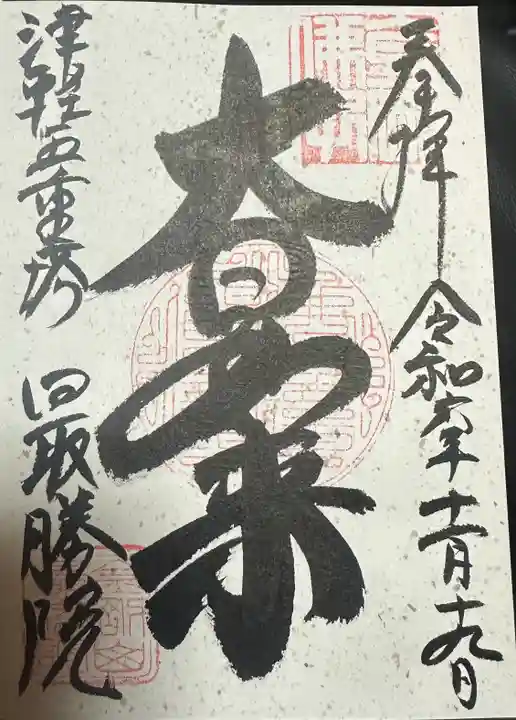 奉拝 令和六年十一月十九日
大日如来
津軽五重塔 最勝院